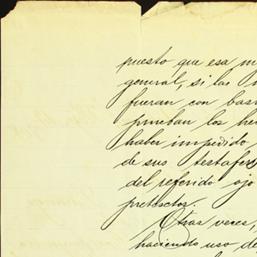 puesto que esa m
general, si las
fueran con bas
prueban los he
haber impedido
de sus testafe
del referido ojo
pretactos.
Otras veces,
haciendo uso de